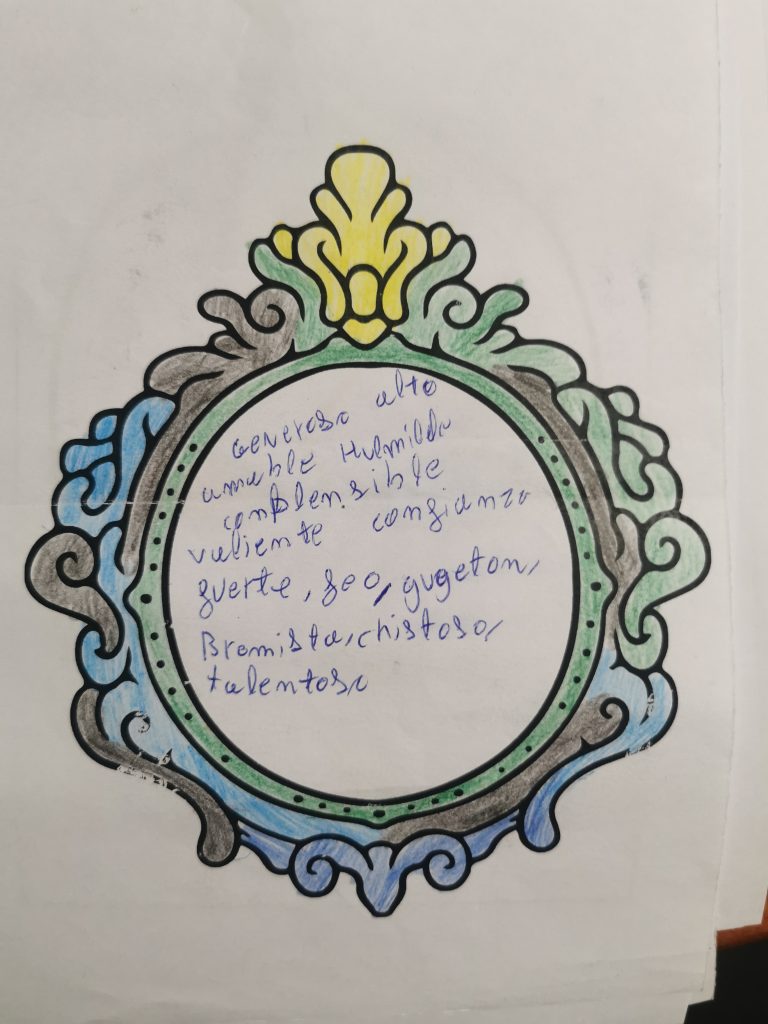 Generoso alto
amable Hulmilde
complensible
valiente confianza
fuerte, feo, gugeton,
Bromista, chistoso,
talentoso